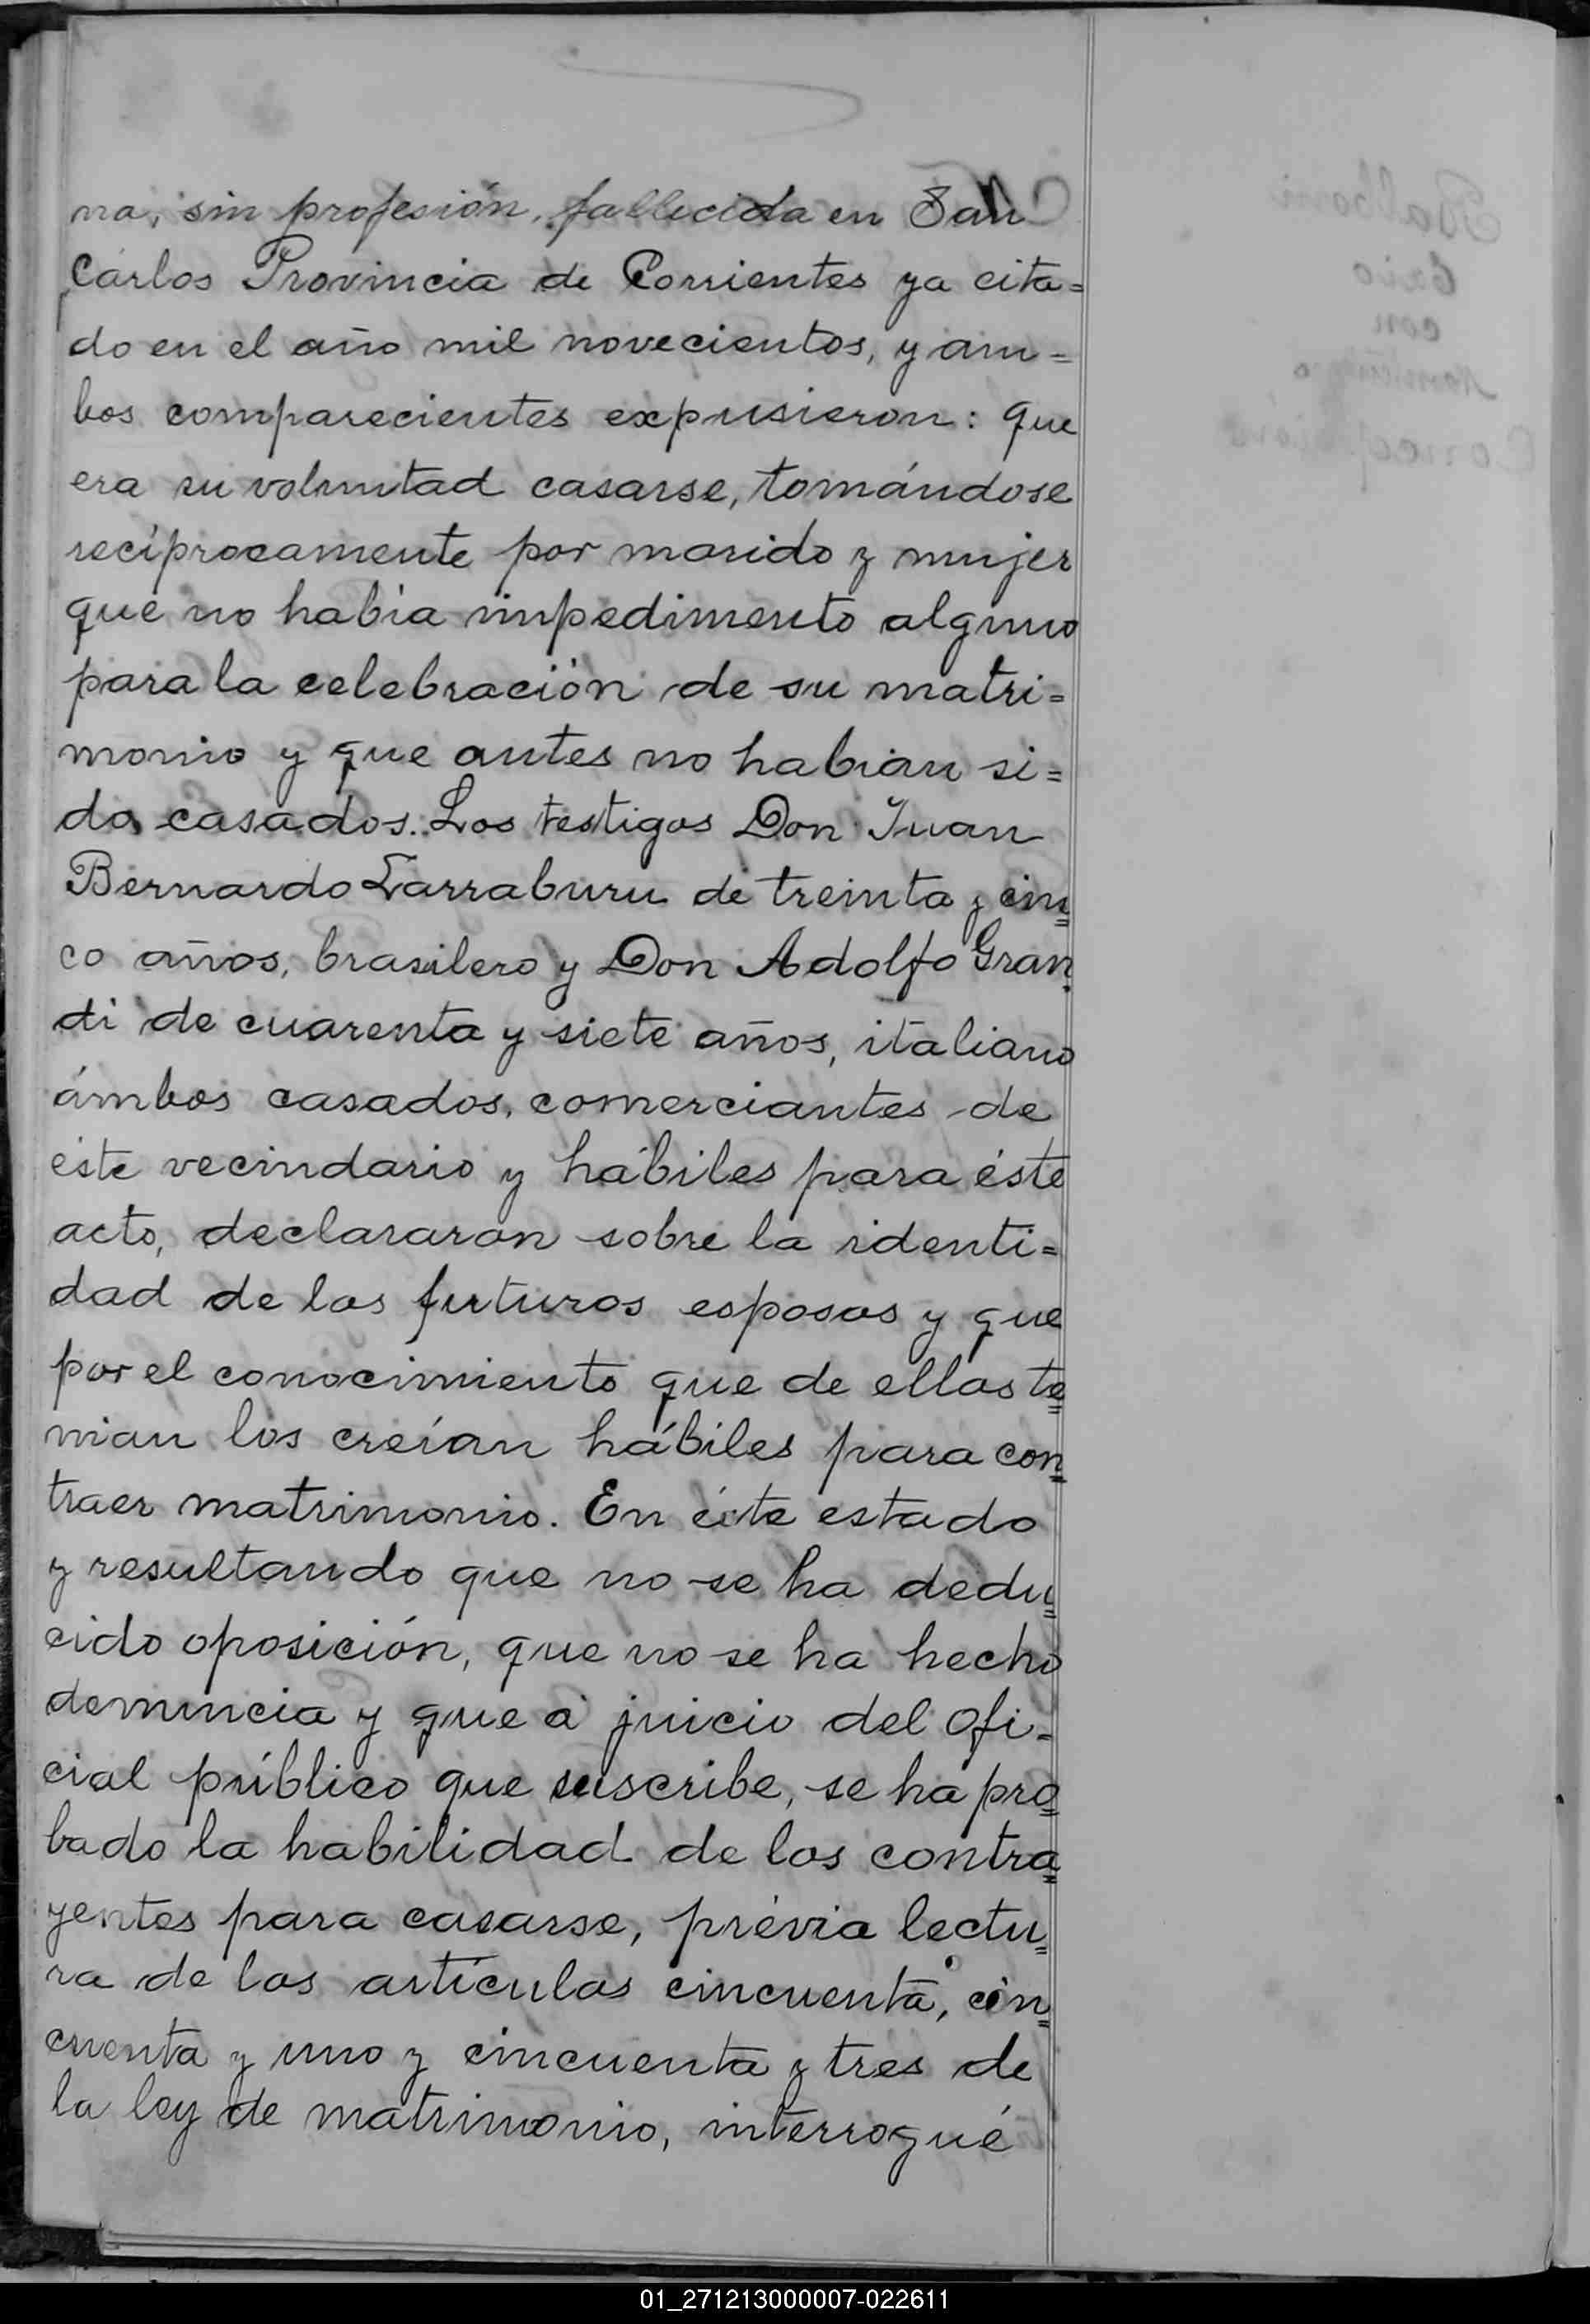 na, sin profesión, fallecida en San
Cárlos Provincia de Corrientes ya cita=
do en el año mil novecientos, y am=
bos comparecientes expusieron: que
era su voluntad casarse, tomándose
recíprocamente por marido y mujer
que no había impedimento alguno
para la celebración de su matri=
monio y que antes no habian si=
do casados. Los testigos Don Juan
Bernardo Larraburu de treinta y cin=
co años, brasilero y Don Adolfo Gran=
di de cuarenta y siete años, italiano
ámbos casados, comerciantes de
éste vecindario y hábiles para éste
acto, declararon sobre la identi=
dad de los futuros esposos y que
por el conocimiento que de ellos te=
nian los creían hábiles para con=
traer matrimonio. En éste estado
y resultando que no se ha dedu=
cido oposición, que no se ha hecho
denuncia y que á juicio del ofi-
cial público que suscribe, se ha pro=
bado la habilidad de los contra=
yentes para casarse, prévia lectu=
ra de los artículos cincuenta, cin=
cuenta y uno y cincuenta y tres de
la ley de matrimonio, interrogué
01_271213000007-022611